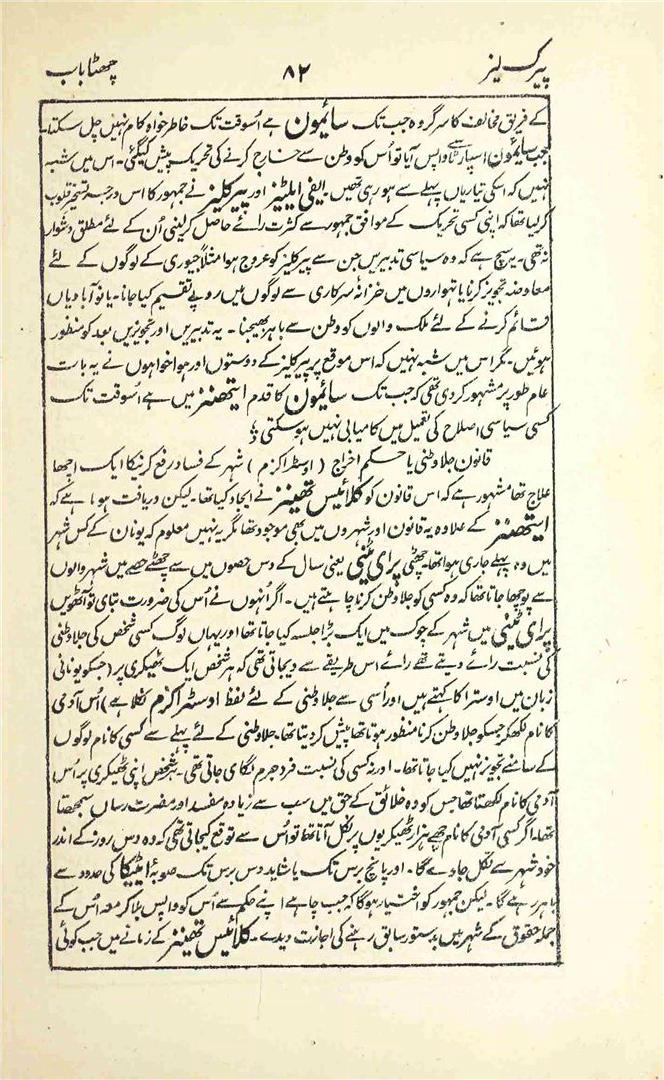 پیرکلیز
۸۲
چھٹا باب
کے فریق مخالف کا سرگروہ جب تک سائیمون ہے اُسوقت تک خاطر خواہ کام نہیں چل سکتا۔
جب سائیمون اسپارٹا سے واپس آیا تو اُس کو وطن سے خارج کرنے کی تحریک پیش کیگئی۔ اس میں شبہ
نہیں کہ اسکی تیاریاں پہلے سے ہو رہی تھیں۔ ایفی ایلٹیز اور پیرکلیز نے جمہور کا اس درجہ تسخیر قلوب
کر لیا تھا کہ اپنی کسی تحریک کے موافق جمہور سے کثرت رائے حاصل کر لینی اُن کے لئے مطلق دشوار
نہ تھی۔ یہ سچ ہے کہ وہ سیاسی تدبیریں جن سے پیرکلیز کو عروج ہوا مثلاً جیوری کے لوگوں کے لئے
معاوضہ تجویز کرنا یا تہواروں میں خزانۂ سرکاری سے لوگوں میں روپے تقسیم کیا جانا۔ یا نو آبادیاں
قائم کرنے کے لئے ملک والوں کو وطن سے باہر بھیجنا۔ یہ تدبیریں اور تجویزیں بعد کو منظور
ہوئیں۔ مگر اس میں شبہ نہیں کہ اس موقع پر پیرکلیز کے دوستوں اور ہوا خواہوں نے یہ بات
عام طور پر مشہور کر دی تھی کہ جب تک سائیمون کا قدم ایتھنز میں ہے اُسوقت تک
کسی سیاسی اصلاح کی تعمیل میں کامیابی نہیں ہو سکتی ؛
قانون جلاوطنی یا حکم اخراج (اوسٹراکزم) شہر کے فساد رفع کرنیکا ایک اچھا
علاج تھا مشہور ہے کہ اس قانون کو کلائیس تھینز نے ایجاد کیا تھا۔ لیکن دریافت ہوا ہے کہ
ایتھنز کے علاوہ یہ قانون اور شہروں میں بھی موجود تھا مگر یہ نہیں معلوم کہ یونان کے کس شہر
میں وہ پہلے جاری ہوا تھا۔ چھٹی پرائی ٹینی یعنی سال کے دس حصوں میں سے چھٹے حصے میں شہر والوں
سے پوچھا جاتا تھا کہ وہ کسی کو جلا وطن کرنا چاہتے ہیں۔ اگر اُنہوں نے اُس کی ضرورت بتای تو آٹھویں
پرائی ٹینی میں شہر کے چوک میں ایک بڑا جلسہ کیا جاتا تھا اور یہاں لوگ کسی شخص کی جلا وطنی
کی نسبت رائے دیتے تھے رائے اس طریقے سے دیجاتی تھی کہ ہر شخص ایک ٹھیکری پر (جسکو یونانی
زبان میں اوسترا کا کہتے ہیں اور اُسی سے جلا وطنی کے لئے لفظ اوسٹراکزم نکلا ہے) اُس آدمی
کا نام لکھکر جسکو جلا وطن کرنا منظور ہوتا تھا پیش کر دیتا تھا۔ جلا وطنی کے لئے پہلے سے کسی کا نام لوگوں
کے سامنے تجویز نہیں کیا جاتا تھا۔ اور نہ کسی کی نسبت فرد جرم لگائی جاتی تھی۔ ہر شخص اپنی ٹھیکری پر اُس
آدمی کا نام لکھتا تھا جس کو وہ خلائق کے حق میں سب سے زیادہ مفسد اور مضرت رساں سمجھتا
تھا۔ اگر کسی آدمی کا نام چھے ہزار ٹھیکریوں پر نکل آتا تھا تو اُس سے توقع کیجاتی تھی کہ وہ دس روز کے اندر
خود شہر سے نکل جاوے گا۔ اور پانچ برس تک یا شاید دس برس تک صوبۂ ایٹیکا کی حدود سے
باہر رہے گا۔ لیکن جمہور کو اختیار ہوگا کہ جب چاہے اپنے حکم سے اُس کو واپس بلا کر معہ اُس کے
جملہ حقوق کے شہر میں بدستور سابق رہنے کی اجازت دیدے۔ کلائیس تھینز کے زمانے میں جب کوئی